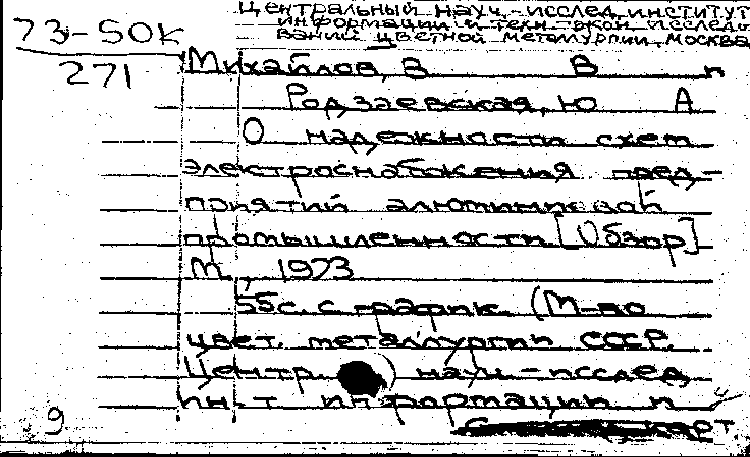 Центральный науч.-исслед. институт
информации и техн.-экон. исследо
ваний цветной металлургии. Москва
73-50К
271
Михайлов, В В п
Родзаевская, Ю А
О надежности схем
электроснабжения пред-
приятий алюминиевой
промышленности [Обзор]
М., 1973
55с. с график. (М-во
цвет. металлургии СССР.
Центр. ) науч.-исслед
ин-т информации и
карт
9